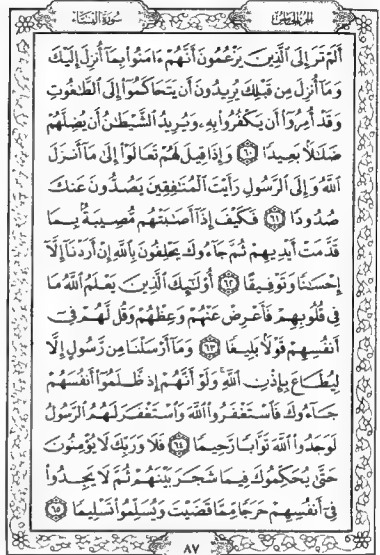 الجزء الخامس سورة النساء
ألم تر إلى الذين يزعمون أنهم ءامنوا بما أنزل إليك
وما أنزل من قبلك يريدون أن يتحاكموا إلى الطغوت
وقد أمروا أن يكفروا به ويريد الشيطن أن يضلهم
ضللا بعيدا ٦٠ وإذا قيل لهم تعالوا إلى ما أنزل
الله وإلى الرسول رأيت المنفقين يصدون عنك
صدودا ٦١ فكيف إذا أصبتهم مصيبة بما
قدمت أيديهم ثم جاءوك يحلفون بالله إن أردنا إلا
إحسنا وتوفيقا ٦٢ أولئك الذين يعلم الله ما
في قلوبهم فأعرض عنهم وعظهم وقل لهم في
أنفسهم قولا بليغا ٦٣ وما أرسلنا من رسول إلا
ليطاع بإذن الله ولو أنهم إذ ظلموا أنفسهم
جاءوك فاستغفروا الله واستغفر لهم الرسول
لوجدوا الله توابا رحيما ٦٤ فلا وربك لا يؤمنون
حتى يحكموك فيما شجر بينهم ثم لا يجدوا
في أنفسهم حرجا مما قضيت ويسلموا تسليما ٦٥
٨٧